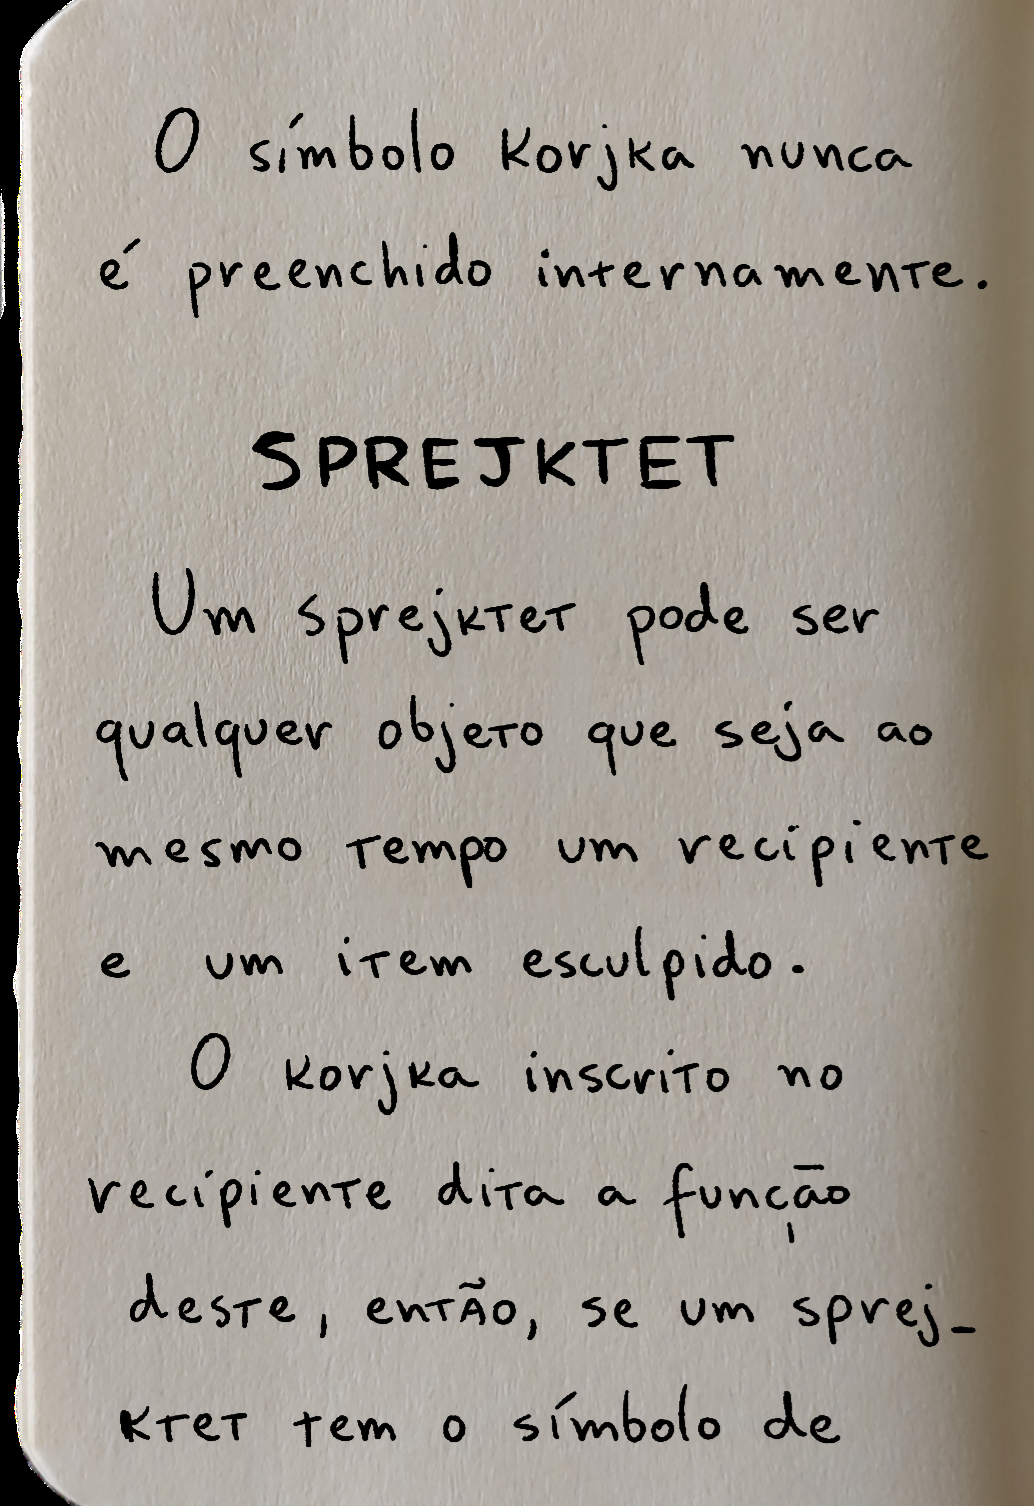 O símbolo Korjka nunca
é preenchido internamente.
SPREJKTET
Um sprejktet pode ser
qualquer objeto que seja ao
mesmo tempo um recipiente
e um item esculpido.
O korjka inscrito no
recipiente dita a função
deste, então, se um sprej-
ktet tem o símbolo de